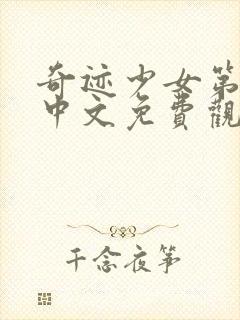 奇迹少女第
中文免費觀
千念夜筝